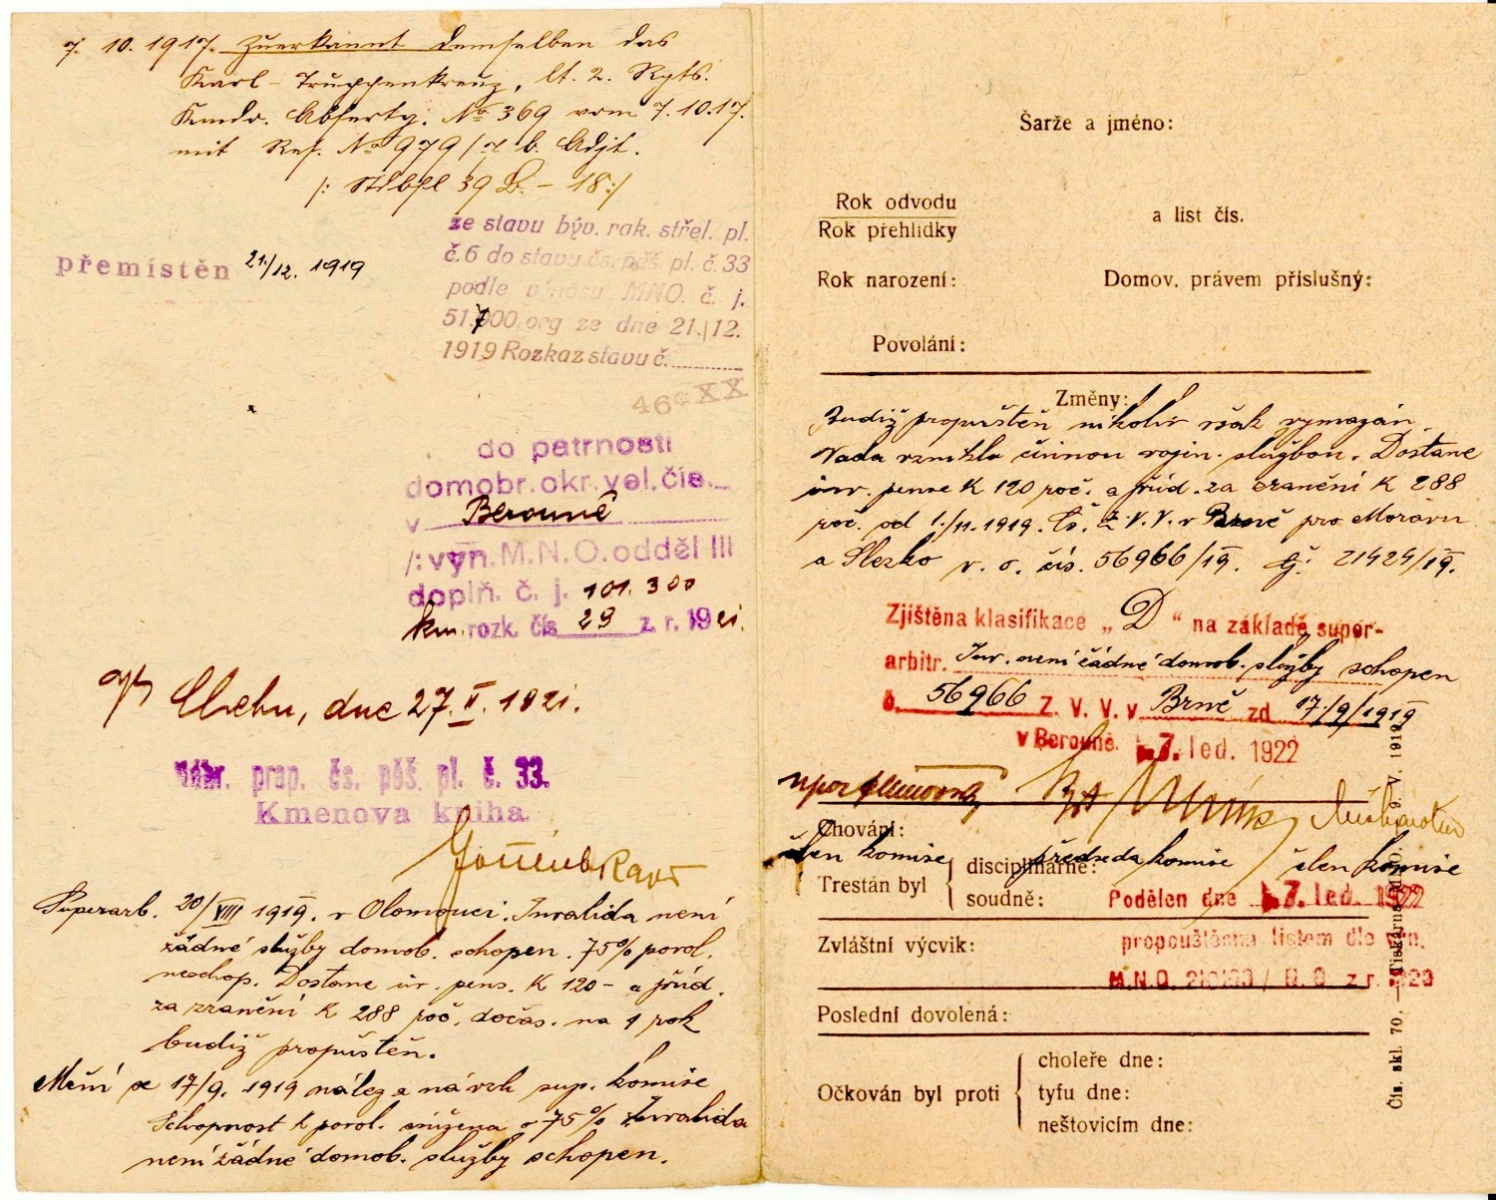 7. 10. 1917. Zuerkannt demselben das
Karl-Truppenkreuz, lt. 2. Rgts.
Kmdo. Abferty. № 369 vom 7.10.17.
mit Res. № 979/ b. Adjt.
/: Stlbpl 39 D. – 18 :/
ze stavu býv. rak. střel. pl.
č.6 do stavu čs. pěš. pl. č.33
přemístěn 21./12. 1919
podle výnosu MNO. č. j.
51.700.org ze dne 21./12.
1919 Rozkaz stavu č.
46 XX
do patrnosti
domobr.okr.vel.čís.
v Berouně
/: výn.M.N.O.odděl III
doplň. č. j. 101.300
km. rozk. čís 29 z. r. 1921.
V Chebu, dne 27.II.1921.
náhr. prap. čs. pěš. pl. č. 33.
Kmenova kniha.
Superarb. 20/VIII 1919. v Olomouci. Invalida není
žádné služby domob. schopen. 75% porol.
neschop. Dostane inv. pens. K 120- a příd.
za zranění K 288 roč. dočas. na 1 rok
budiž propuštěn.
Mění se 17/9. 1919 nález a návrh sup. komise
Schopnost k porol. snížena o 75% Invalida
není žádné domob. služby schopen.
Šarže a jméno:
Rok odvodu
Rok přehlídky
a list čís.
Rok narození:
Domov. právem příslušný:
Povolání:
Změny:
Budiž propuštěn nikoliv však vymazán.
Vada vznikla činnou vojen. službou. Dostane
inv. pense K 120 roč. a příd. za zranění K 288
roč. od 1./11.1919. Čs. Z.V.V. v Brně pro Moravu
a Slezko v. o. čís. 56966/19. čj. 21424/19.
Zjištěna klasifikace „D“ na základě super-
arbitr. Inv. není žádné domob. služby schopen
č. 56966 Z. V. V. v Brně zd 17./9/1919
v Berouně. 7. led. 1922
Chování:
člen komise předseda komise člen komise
Trestán byl
disciplinárně:
soudně:
Podělen dne 7. led. 1922
Zvláštní výcvik:
propouštěcím listem dle výn.
M.N.O. z r. 1920
Poslední dovolená:
Očkován byl proti
choleře dne:
tyfu dne:
neštovicím dne:
Čís. skl. 70. — Tiskárna M.N.O. 9. V. 1919